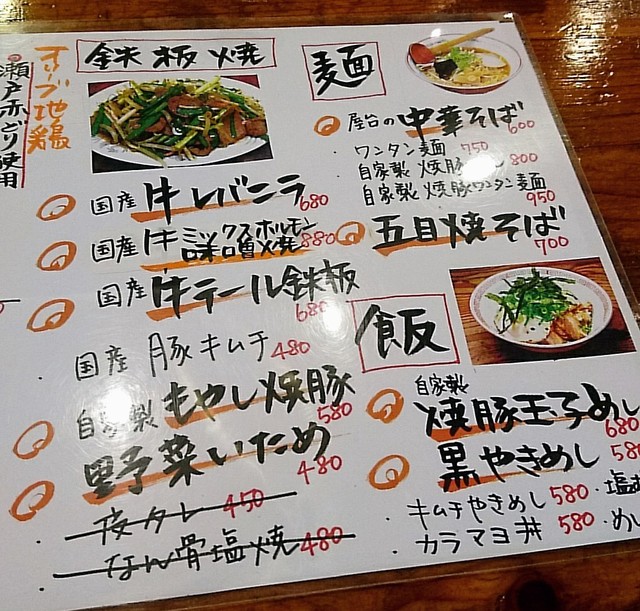 オリーブ地鶏
瀬戸赤どり使用
鉄板焼
国産牛レバニラ 680
国産牛ミックスホルモン
味噌焼 880
国産牛テール鉄板
680
国産 豚キムチ 480
自家製もやし焼豚
580
野菜いため
480
皮タレ 450
なん骨塩焼 480
麺
屋台の中華そば
600
ワンタン麺 750
自家製 焼豚 800
自家製 焼豚ワンタン麺
950
五目焼そば
700
飯
自家製
焼豚玉子めし
680
黒やきめし 580
キムチやきめし 580 ・塩
カラマヨ丼 580 ・めし